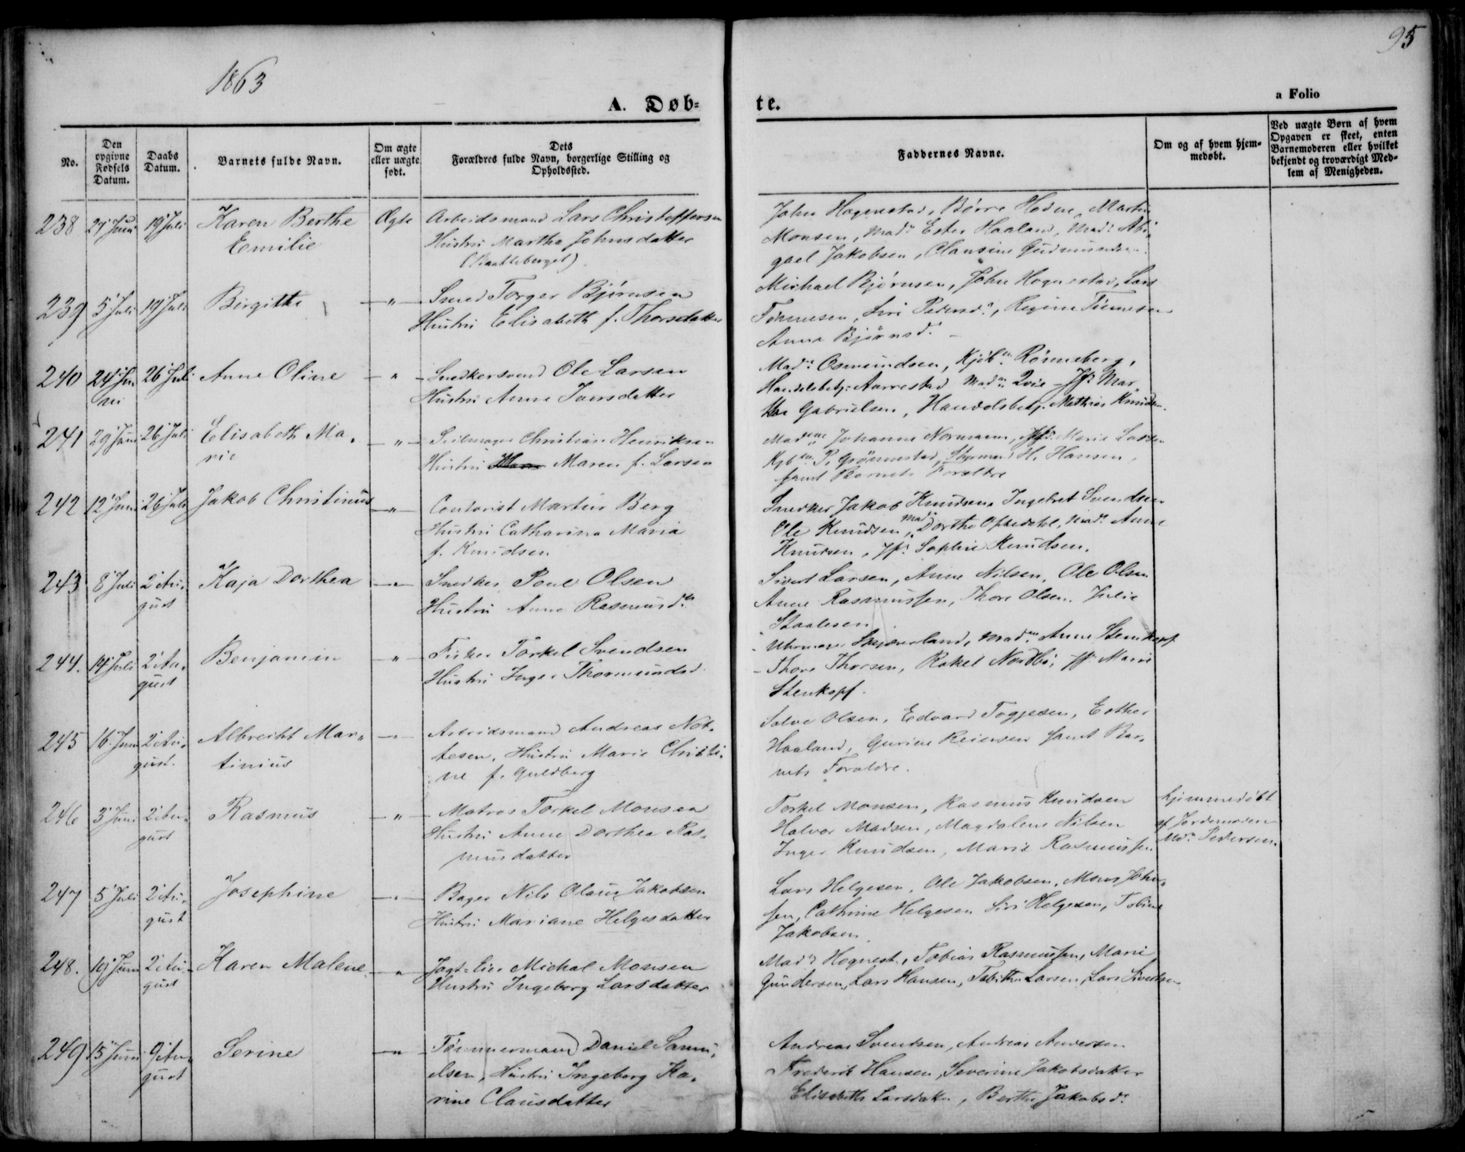 1863
95
A. Døb-
te.
a Folio
No.
Den
opgivne
Fødsels
Datum.
Daabs
Datum.
Barnets fulde Navn.
Om ægte
eller uægte
født.
Dets
Forældres fulde Navn, borgerlige Stilling og
Opholdssted.
Faddernes Navne.
Om og af hvem hjem-
medøbt.
Ved uægte Børn af hvem
Opgaven er skeet, enten
Barnemoderen eller hvilket
bekjendt og troværdigt Med-
lem af Menigheden.
238 27 Juni 19 Juli Karen Berthe
Emilie
Ægte
Arbeidsmand Lars Christoffersen
Hustru Martha Johnsdatter
John Hognestad, Børre Hodne, Martin
Monsen, Mad. Ester Haaland, Mad. Abi-
gael Jakobsen, Clausine Gudmundsen
239 5 Juli 19 Juli Birgitte
—"—
Smed Torger Bjørnsen
Hustru Elisabeth f. Thorsdatter
Michael Bjørnsen, John Hognestad, Lars
Tønnesen, Siri Pedersd., Regine Tønnesen
Anna Bjørnsd.
240 24 Ju
ni
26 Juli Anne Oline
—"—
Snedkersvend Ole Larsen
Hustru Anne Iversdatter
Mad. Osmundsen, Kjøb. Rosenberg,
Handelsbetj. Aarrestad Mad. Qvie Jfr. Mar-
tha Gabrielsen, Handelsbetj. Mathias Knudsen
241 29 Juni 26 Juli Elisabeth Ma-
rie
—"—
Seilmager Christian Henriksen
Hustru Maren f. Larsen
Madme Johanne Normann, Jfr. Marie Larsen
Kjbm. P. Grønnestad, Styrmand H. Hansen,
samt Barnets Forældre
242 12 Juni 26 Juli Jakob Christinius
—"—
Contorist Martin Berg
Hustru Catharina Maria
f. Knudsen
Snedker Jakob Knudsen, Ingebret Svendsen
Ole Knudsen, Mad. Dorthe Opstedahl, Mad. Anne
Knudsen, Jfr. Sophie Knudsen.
243 8 Juli 2 Au-
gust
Kaja Dorthea
—"—
Snedker Poul Olsen
Hustru Anna Rasmusd.
Sivert Larsen, Anne Nilsen, Ole Olsen
Anne Rasmussen, Thore Olsen, Julie
Staalesen
244. 14 Juli 2 Au-
gust
Benjamin
—"—
Fisker Torkel Svendsen
Hustru Inger Thormundsd.
Uhrmager Skjæveland, Mad. Anne Stenkopf
Thore Thorsen, Rakel Nordbø, Jfr. Marie
Stenkopf.
245 16 Juni 2 Au-
gust.
Albrecht Mar-
tinius
—"—
Arbeidsmand Andreas Not-
tesen, Hustru Marie Christi-
ne f. Guldberg
Salve Olsen, Edvard Toggesen, Esther
Haaland, Gurine Reiersen samt Bar-
nets Forældre.
246 3 Juni 2 Au-
gust
Rasmus
—"—
Matros Torkel Monsen
Hustru Anne Dorthea Ras-
musdatter
Torkel Monsen, Rasmus Knudsen
Halvor Madsen, Magdalene Nilsen
Inger Knudsen, Marie Rasmussen
hjemmedøbt
af Jordemoder
Md. Pedersen
247 5 Juli 2 Au-
gust
Josephine
—"—
Bager Nils Olaus Jakobsen
Hustru Mariane Helgesdatter
Lars Helgesen, Ole Jakobsen, Mons John-
sen, Cathrine Helgesen Siri Helgesen, Tobine
Jakobsen
248. 19 Juni 2 Au-
gust
Karen Malene
"
Jagt-Eier Michal Monsen
Hustru Ingeborg Larsdatter
Mad. Hognest., Tobias Rasmussen, Marie
Gundersen, Lars Hansen, Tabitha Larsen, Lars Svendsen
249 15 Juni 9 Au-
gust
Serine
—"—
Tømmermand Daniel Samu-
elsen, Hustru Ingeborg Ka-
rine Clausdatter
Andreas Svendsen, Andreas Andersen
Frederik Hansen, Severine Jakobsdatter
Elisabeth Larsdatter, Berthe Jakobsd.